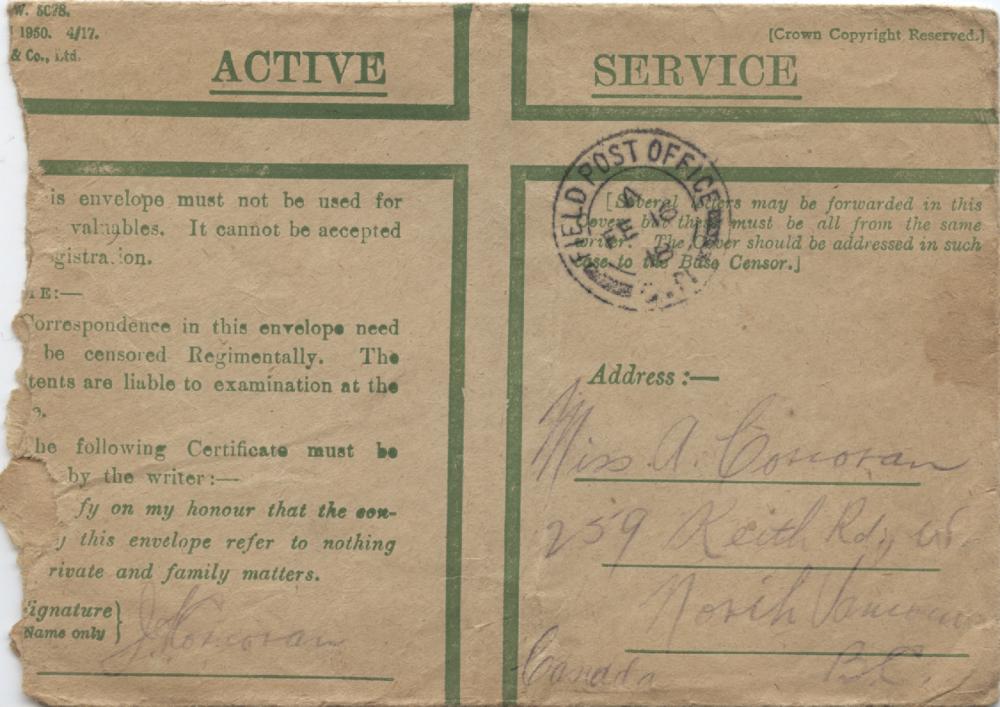 W. 5C78.
1950. 4/17.
& Co., Ltd.
[Crown Copyright Reserved.]
ACTIVE SERVICE
is envelope must not be used for
valuables. It cannot be accepted
gistration.
TE:—
Correspondence in this envelope need
be censored Regimentally. The
tents are liable to examination at the
e.
he following Certificate must be
by the writer:—
fy on my honour that the con-
y this envelope refer to nothing
rivate and family matters.
Signature
Name only
J. Corcoran
FIELD POST OFFICE
FE 4
18
[Several letters may be forwarded in this
cover, but these must be all from the same
writer. The Cover should be addressed in such
case to the Base Censor.]
Address:—
Miss A. Corcoran
259 Keith Rd., W.
North Vancouver
Canada B.C.